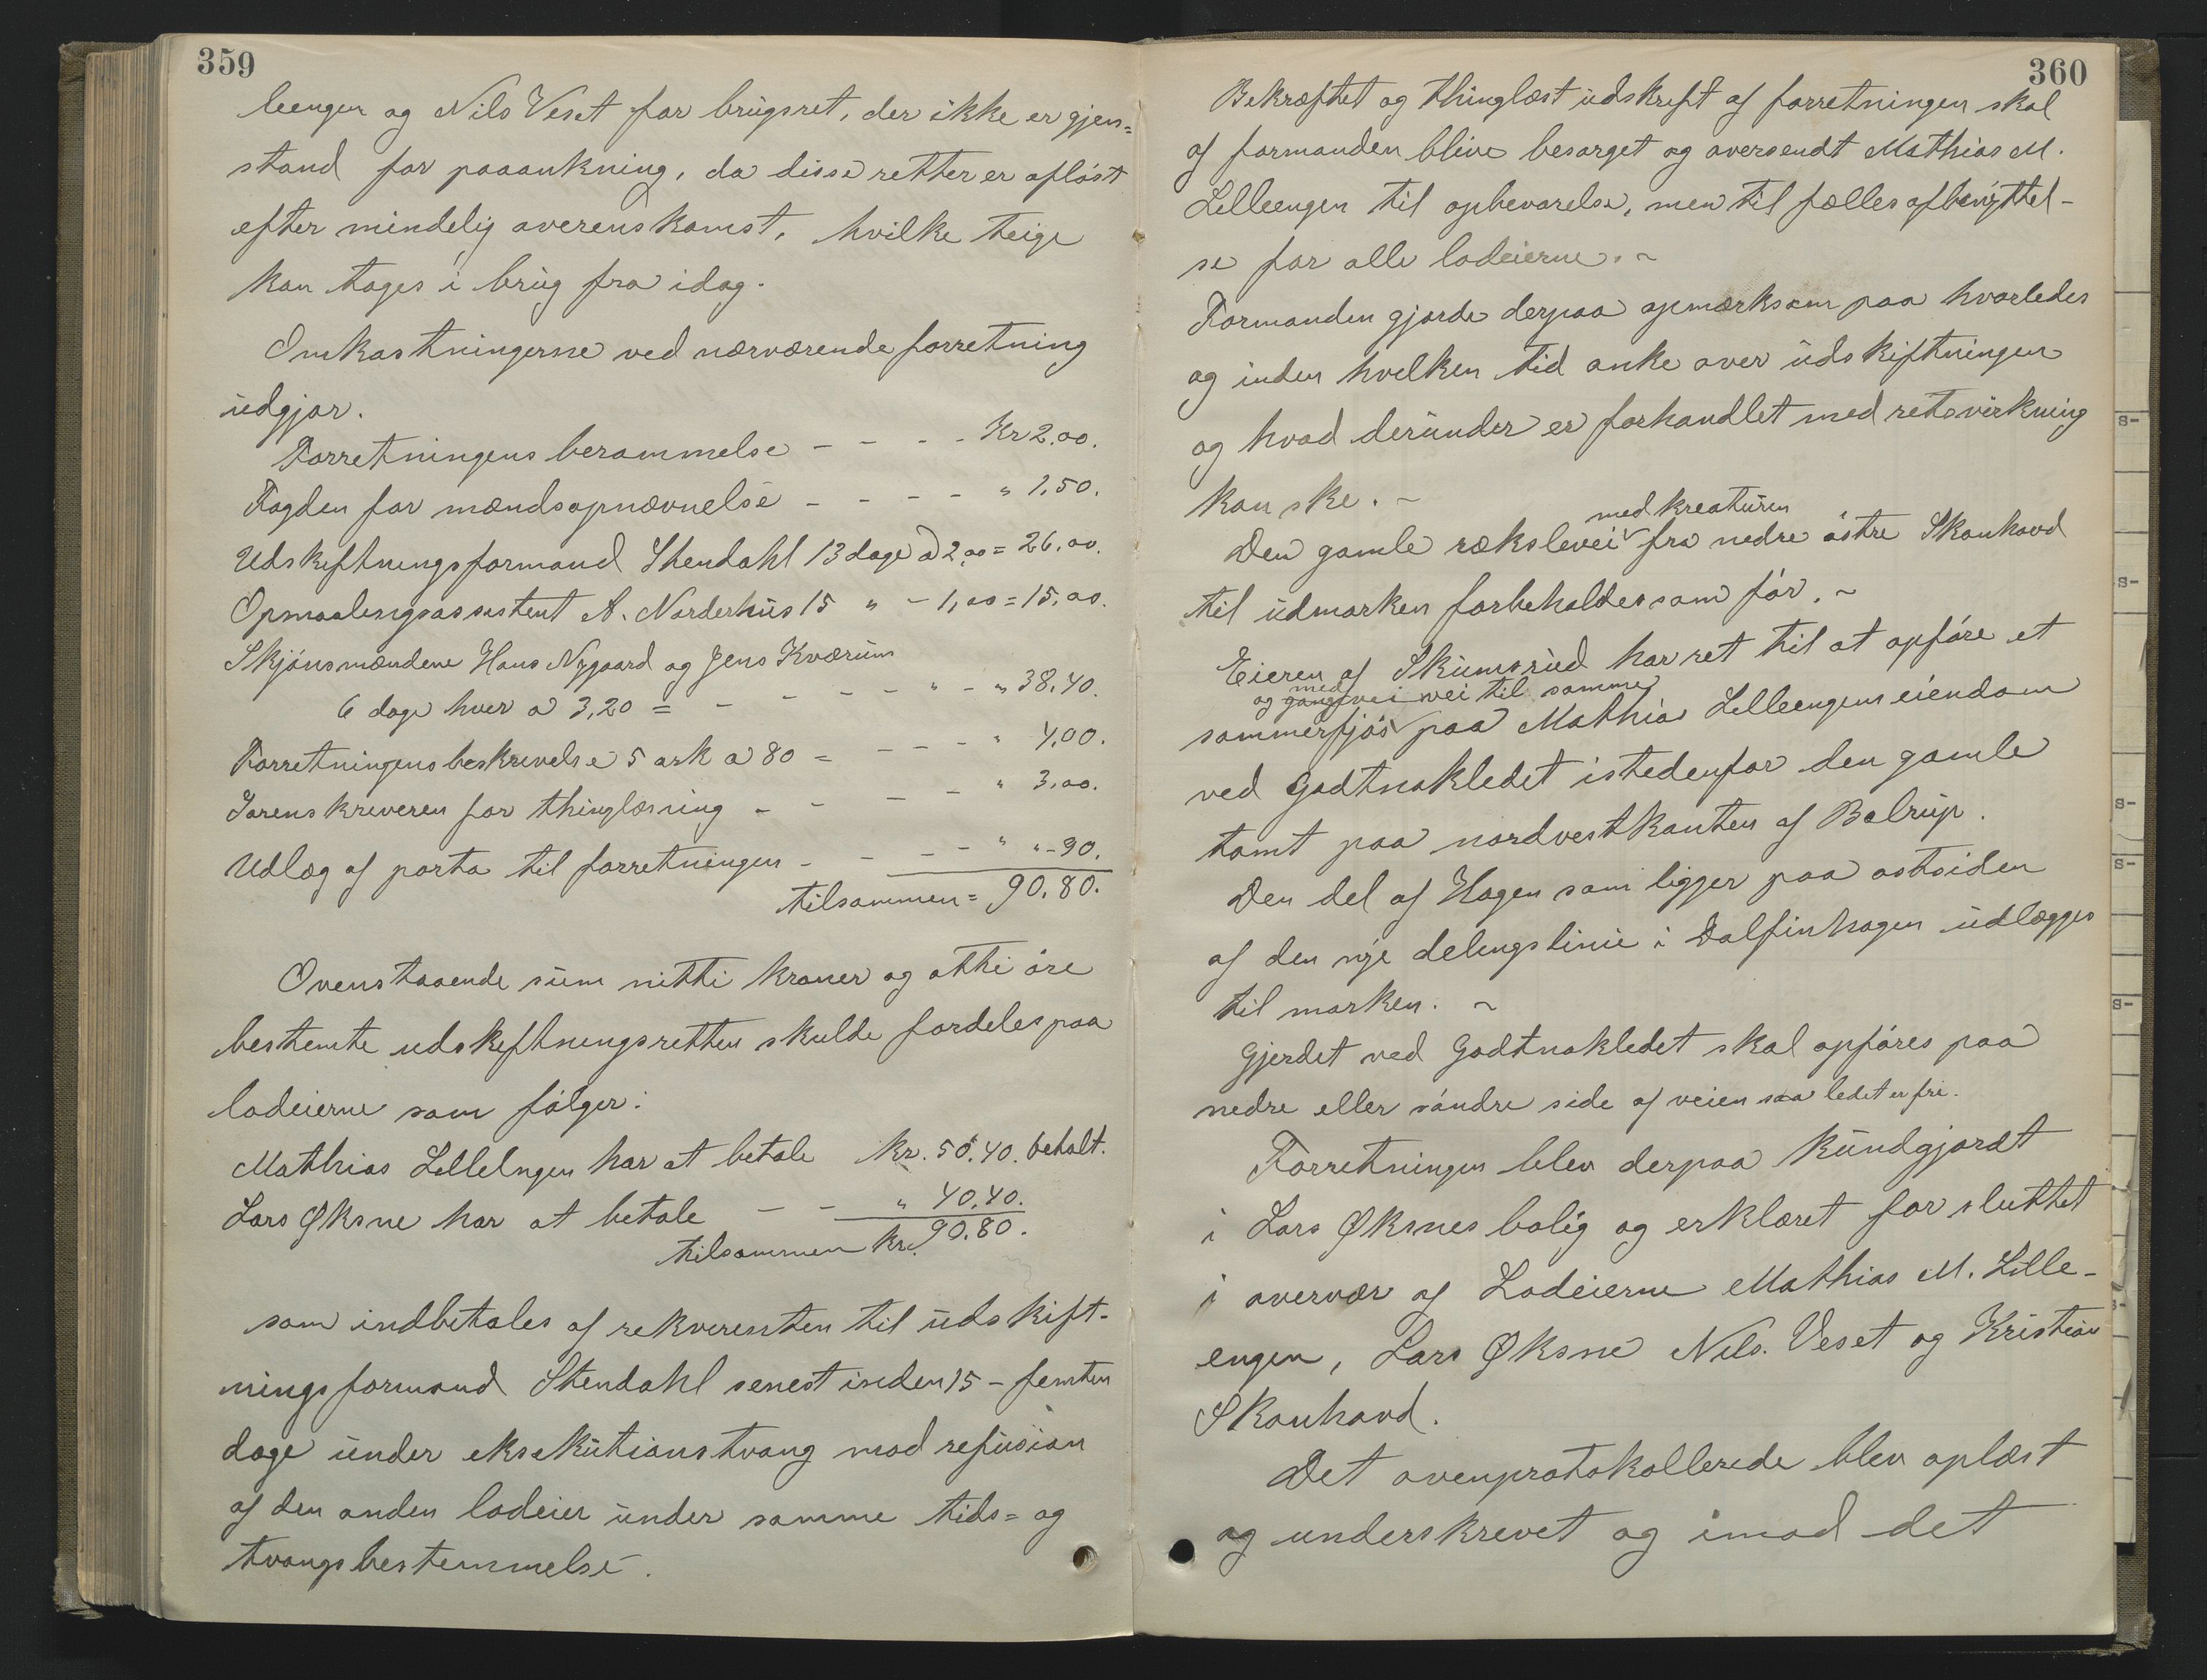 359
leengen og Nils Veset for brugsret, der ikke er gjen=
stand for paaankning, da disse retter er opløst
efter mindelig overenskomst, hvilke teige
kan tages i brug fra idag.
Omkostningerne ved nærværende forretning
udgjør.
Forretningens berammelse - - - - Kr 2.00.
Fogden for mændsopnævnelse - - - - " 1.50.
Udskiftningsformand Stendahl 13 dage a 2,00 = 26.00.
Opmaalingsassistent A. Norderhus 15 " - 1,00 = 15,00.
Skjønsmændene Hans Nygaard og Jens Kværum
6 dage hver a 3,20 = - - - - " - " 38.40.
Forretningens beskrivelse 5 ark a 80 = - - - " 4,00.
Sorenskriveren for thinglæsning - - - - " 3.00.
Udlæg af porto til forretningen - - - - " " - 90.
tilsammen = 90.80.
Ovenstaaende sum nitti kroner og otti øre
bestemte udskiftningsretten skulde fordeles paa
lodeierne som følger:
Mathias Lillelngen har at betale Kr. 50.40. betalt.
Lars Øksne har at betale - - " 40.40.
tilsammen Kr. 90.80.
som indbetales af rekvirenten til udskift-
ningsformand Stendahl senest inden 15 - femten
dage under eksekutionstvang mod refusion
af den anden lodeier under samme tids= og
tvangsbestemmelse.
360
Bekræftet og thinglæst udskrift af forretningen skal
af formanden blive besørget og oversendt Mathias M.
Lilleengen til opbevarelse, men til fælles afbenyttel-
se for alle lodeierne. ~
Formanden gjorde derpaa opmærksom paa hvorledes
og inden hvilken tid anke over udskiftningen
og hvad derunder er forhandlet med retsvirkning
kan ske. ~
med kreaturen
Den gamle rækslevei fra nedre østre Skonhovd
til udmarken forbeholdes som før. ~
Eieren af Skumsrud har ret til at opføre et
og gangvei med vei til samme
sommerfjøs paa Mathias Lilleengens eiendom
ved Godtnokledet istedenfor den gamle
tomt paa nordvestkanten af Bolrup.
Den del af Hagen som ligger paa ostsiden
af den nye delingslinie i Dalfinhagen udlægges
til marken. ~
Gjerdet ved Godtnokledet skal opføres paa
nedre eller søndre side af veien saa ledet er fri.
Forretningen blev derpaa kundgjordt
i Lars Øksnes bolig og erklæret for sluttet
i overvær af Lodeierne Mathias M. Lille-
engen, Lars Øksne Nils. Veset og Kristian
Skonhovd.
Det ovenprotokollerede blev oplæst
og underskrevet og imod det